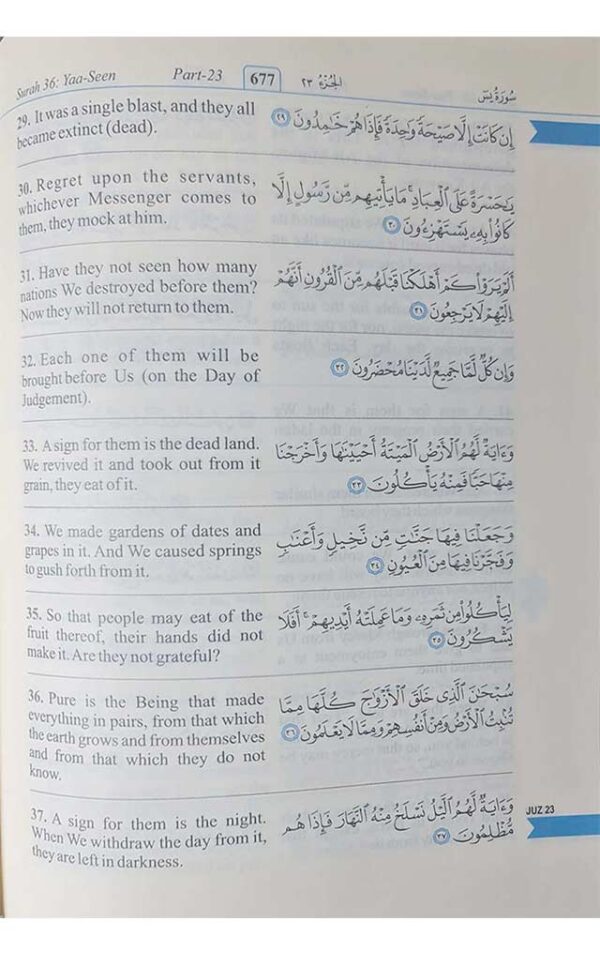 Surah 36: Yaa-Seen Part-23 677 الجزء ٢٣ سورة يس
29. It was a single blast, and they all
became extinct (dead).
إِن كَانَتْ إِلَّا صَيْحَةً وَٰحِدَةً فَإِذَا هُمْ خَٰمِدُونَ ٢٩
30. Regret upon the servants,
whichever Messenger comes to
them, they mock at him.
يَٰحَسْرَةً عَلَى ٱلْعِبَادِ ۚ مَا يَأْتِيهِم مِّن رَّسُولٍ إِلَّا
كَانُوا۟ بِهِۦ يَسْتَهْزِءُونَ ٣٠
31. Have they not seen how many
nations We destroyed before them?
Now they will not return to them.
أَلَمْ يَرَوْا۟ كَمْ أَهْلَكْنَا قَبْلَهُم مِّنَ ٱلْقُرُونِ أَنَّهُمْ
إِلَيْهِمْ لَا يَرْجِعُونَ ٣١
32. Each one of them will be
brought before Us (on the Day of
Judgement).
وَإِن كُلٌّ لَّمَّا جَمِيعٌ لَّدَيْنَا مُحْضَرُونَ ٣٢
33. A sign for them is the dead land.
We revived it and took out from it
grain, they eat of it.
وَءَايَةٌ لَّهُمُ ٱلْأَرْضُ ٱلْمَيْتَةُ أَحْيَيْنَٰهَا وَأَخْرَجْنَا
مِنْهَا حَبًّا فَمِنْهُ يَأْكُلُونَ ٣٣
34. We made gardens of dates and
grapes in it. And We caused springs
to gush forth from it.
وَجَعَلْنَا فِيهَا جَنَّٰتٍ مِّن نَّخِيلٍ وَأَعْنَٰبٍ
وَفَجَّرْنَا فِيهَا مِنَ ٱلْعُيُونِ ٣٤
35. So that people may eat of the
fruit thereof, their hands did not
make it. Are they not grateful?
لِيَأْكُلُوا۟ مِن ثَمَرِهِۦ وَمَا عَمِلَتْهُ أَيْدِيهِمْ ۚ أَفَلَا
يَشْكُرُونَ ٣٥
36. Pure is the Being that made
everything in pairs, from that which
the earth grows and from themselves
and from that which they do not
know.
سُبْحَٰنَ ٱلَّذِى خَلَقَ ٱلْأَزْوَٰجَ كُلَّهَا مِمَّا
تُنۢبِتُ ٱلْأَرْضُ وَمِنْ أَنفُسِهِمْ وَمِمَّا لَا يَعْلَمُونَ ٣٦
37. A sign for them is the night.
When We withdraw the day from it,
they are left in darkness.
وَءَايَةٌ لَّهُمُ ٱلَّيْلُ نَسْلَخُ مِنْهُ ٱلنَّهَارَ فَإِذَا هُم
مُّظْلِمُونَ ٣٧
JUZ 23